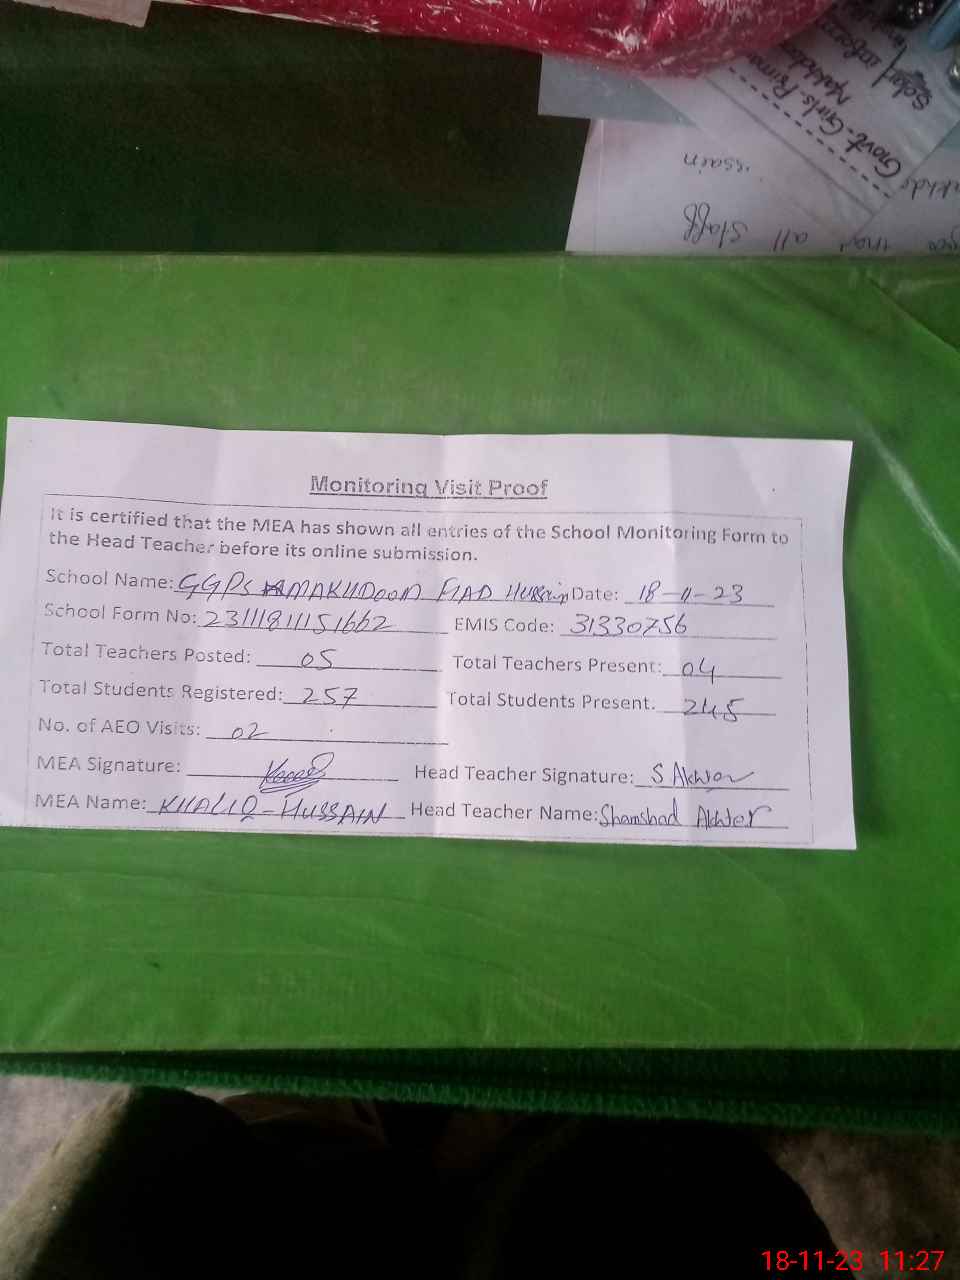 Govt. Girls. Prima
Makhdoo
ssain
all staff
Monitoring Visit Proof
It is certified that the MEA has shown all entries of the School Monitoring Form to
the Head Teacher before its online submission.
School Name: GGPS MAKHDOOM FIAD HUSSain Date: 18-11-23
School Form No: 23111811151662 EMIS Code: 31330756
Total Teachers Posted: 05 Total Teachers Present: 04
Total Students Registered: 257 Total Students Present. 245
No. of AEO Visits: 02
MEA Signature: Head Teacher Signature: S Akhter
MEA Name: KHALIQ-HUSSAIN Head Teacher Name: Shamshad Akhter
18-11-23 11:27